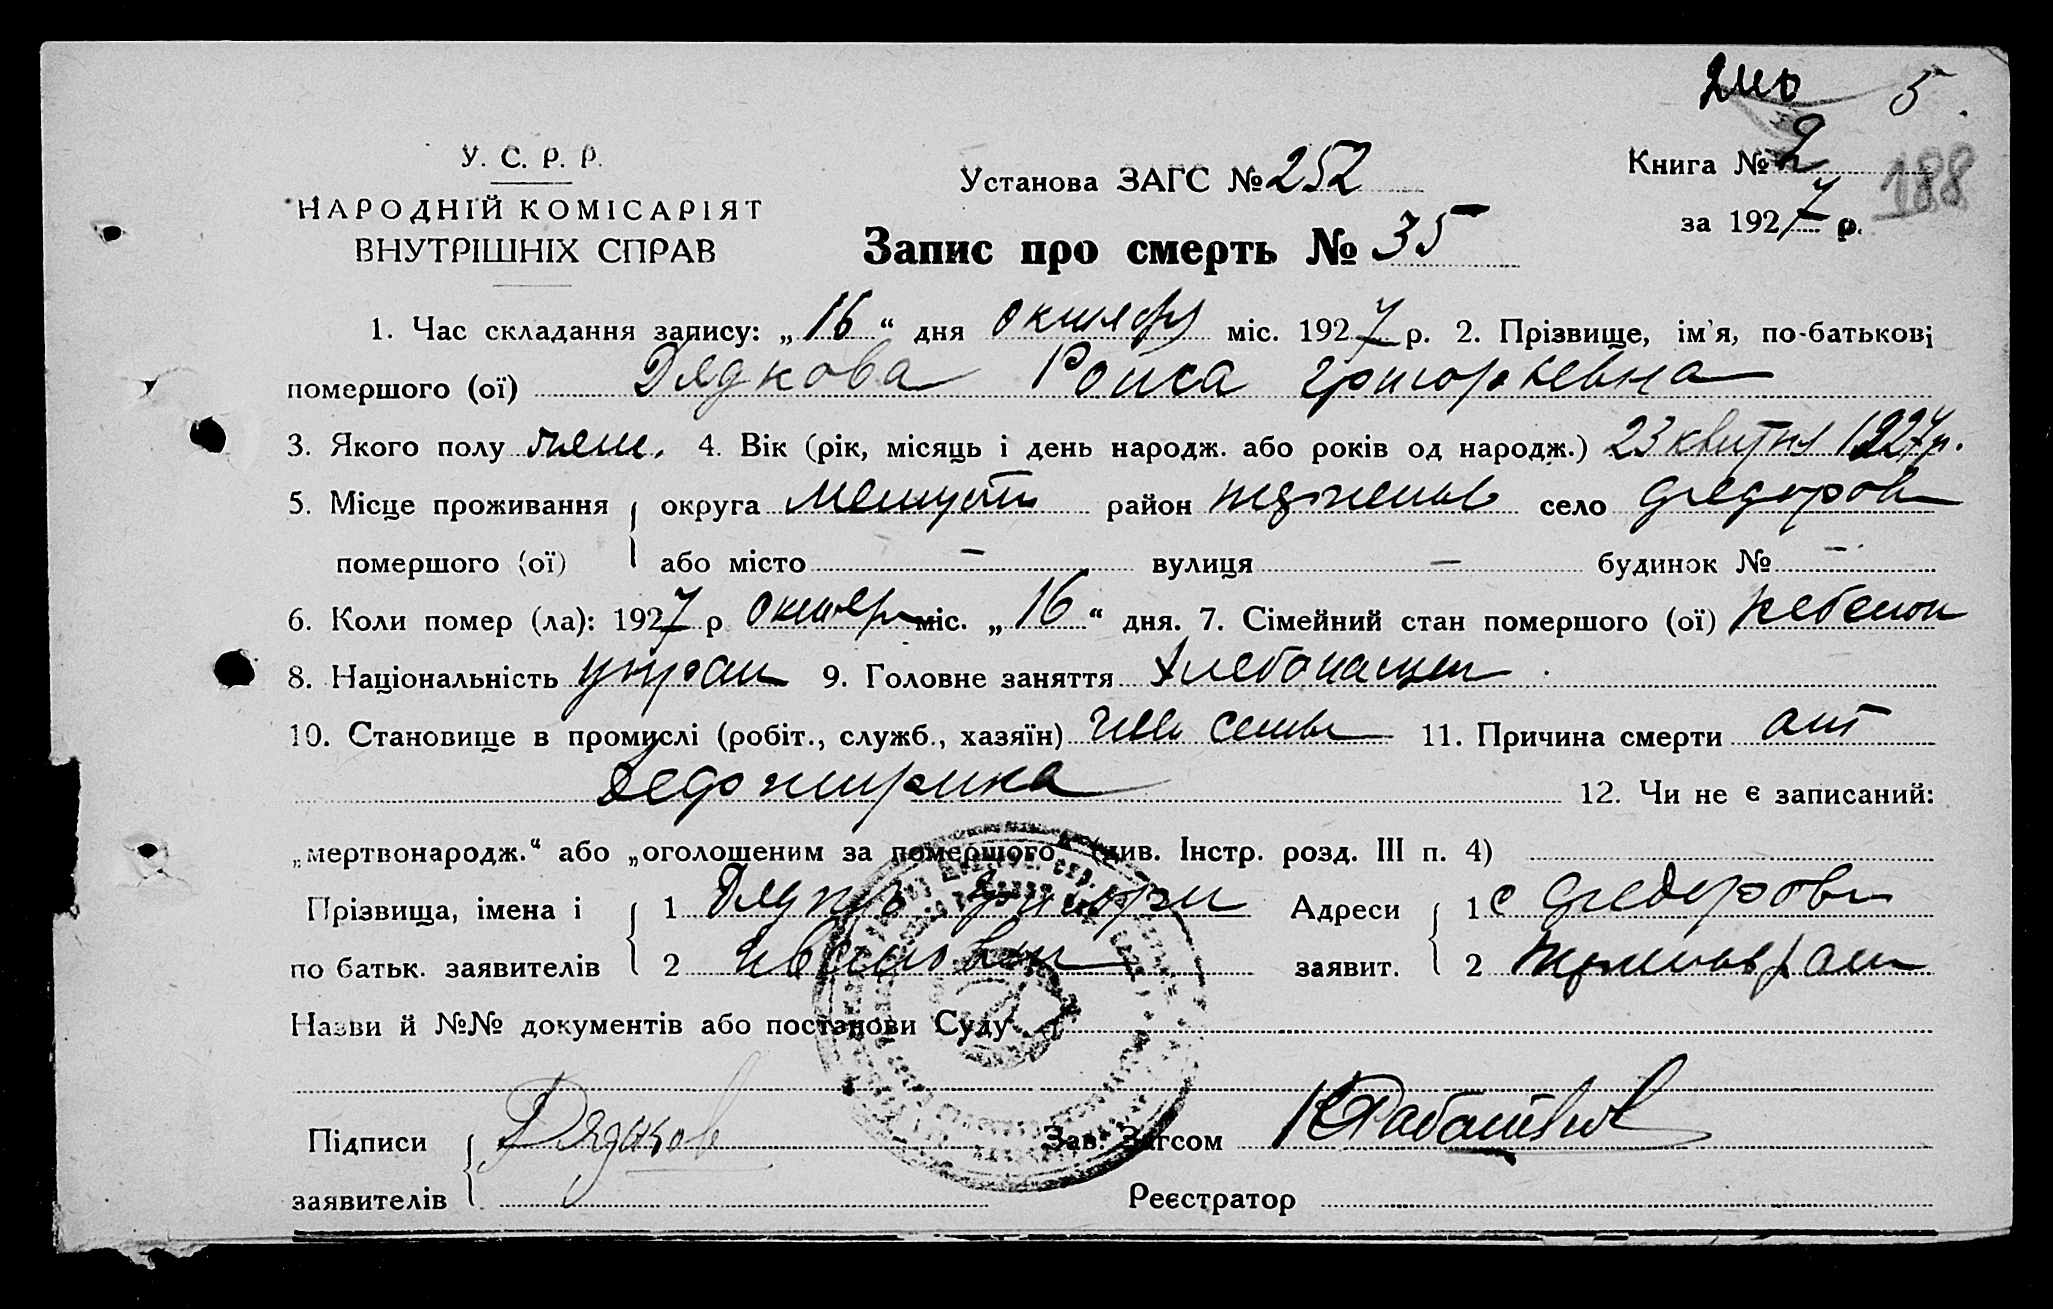 5
У. С. Р. Р.
Установа ЗАГС № 252
Книга № 2
188
НАРОДНІЙ КОМІСАРІЯТ
за 1927 р.
ВНУТРІШНІХ СПРАВ
Запис про смерть № 35
1. Час складання запису: „16“ дня октября міс. 1927 р. 2. Прізвище, ім'я, по-батькові
помершого (ої) Дядкова Раиса Григорьевна
3. Якого полу жен. 4. Вік (рік, місяць і день народж. або років од народж.) 23 квітня 1927 р.
5. Місце проживання округа район село Федоров
помершого (ої) або місто — вулиця — будинок № —
6. Коли помер (ла): 1927 р октяб міс. „16“ дня. 7. Сімейний стан помершого (ої) ребенок
8. Національність украин 9. Головне заняття хлебопашец
10. Становище в промислі (робіт., служб., хазяїн) член семьи 11. Причина смерти от
12. Чи не є записаний:
„мертвонародж.“ або „оголошеним за помершого“ (див. Інстр. розд. III п. 4)
Прізвища, імена і 1 Дядков Григори Адреси 1 с Федоровк
по батьк. заявителів 2 Иванович заявит. 2
Назви й №№ документів або постанови Суду
Підписи Дядков Зав. Загсом
заявителів Реєстратор